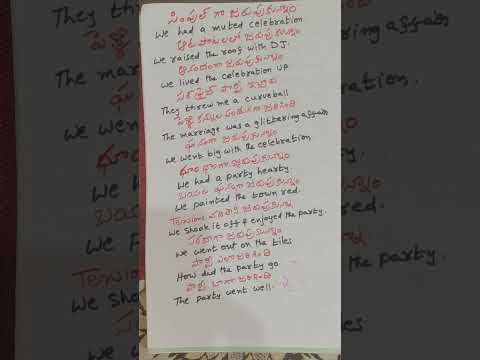 సింపుల్ గా జరుపుకున్నాం
We had a muted celebration
ఆట పాటలతో జరుపుకున్నాం
We raised the roof with DJ.
ఆనందంగా జరుపుకున్నాం
We lived the celebration up
సర్ప్రైజ్ పార్టీ ఇచ్చారు
They threw me a curveball
పెళ్లి కన్నుల పండుగగా జరిగింది
The marriage was a glittering affair
ఘనంగా జరుపుకున్నాం
We went big with the celebration
ధూం ధాంగా జరుపుకున్నాం
We had a party hearty.
బయట ఘనంగా జరుపుకున్నాం
We painted the town red.
Tensions మరిచి జరుపుకున్నాం
We shook it off & enjoyed the party.
సరదాగా జరుపుకున్నాం
We went out on the tiles
పార్టీ ఎలా జరిగింది
How did the party go
పార్టీ బాగా జరిగింది
The party went well.